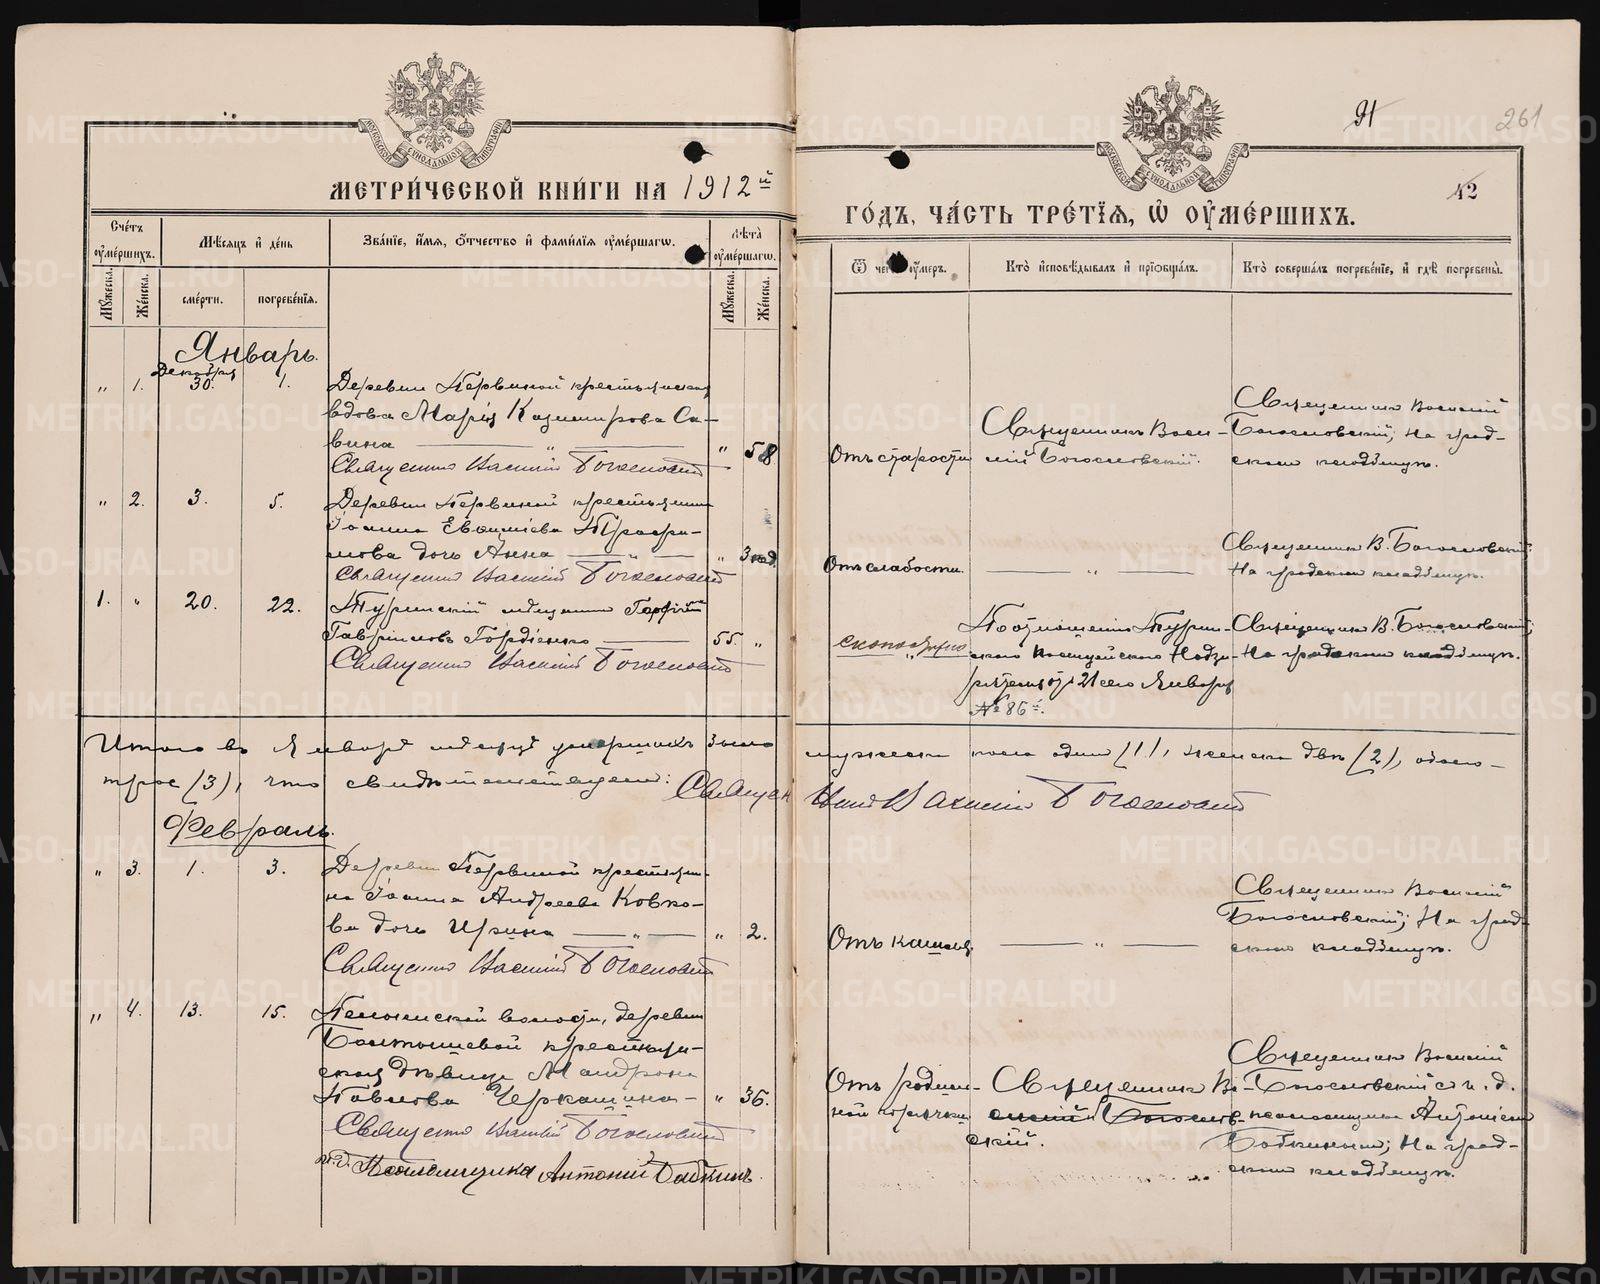 МЕТРИ́ЧЕСКОЙ КНИ́ГИ НА 1912 й
ГО́ДЪ, ЧА́СТЬ ТРЕ́ТІѦ, Ѡ ОУ҆МЕ́РШИХЪ.
91
261
42
МОСКОВСКОЙ СѴНОДАЛЬНОЙ ТИПОГРАФІИ
МОСКОВСКОЙ СѴНОДАЛЬНОЙ ТИПОГРАФІИ
Сче́тъ оу҆ме́ршихъ.
Мꙋжеска.
Же́нска.
Мѣ́сѧцъ и҆ де́нь
сме́рти.
погребе́нїѧ.
Зва́нїе, и҆́мѧ, ѻ҆́тчество и҆ фами́лїѧ оу҆ме́ршагѡ.
Лѣ́та оу҆ме́ршагѡ.
Мꙋжеска.
Же́нска.
Ѿ чегѡ̀ оу҆́меръ.
Кто̀ и҆сповѣ́дывалъ и҆ прїѡбща́лъ.
Кто̀ соверша́лъ погребе́нїе, и҆ гдѣ̀ погребены̀.
Январь.
Декабря
„ 1. 30. 1.
Деревни Первиной крестьянская
вдова Марія Казимирова Са-
вина „ 58
Священникъ Василій Богословскій
Отъ старости
Священникъ Васи-
лій Богословскій.
Священникъ Василій
Богословскій; На град-
скомъ кладбищѣ.
„ 2. 3. 5.
Деревни Первиной крестьянина
Іоанна Евѳиміева Трофи-
мова дочь Анна — „ — „ 3 нед.
Священникъ Василій Богословскій
Отъ слабости.
— „ —
Священникъ В. Богословскій.
На градскомъ кладбищѣ.
1. „ 20. 22.
Туринскій мѣщанинъ Георгій
Гавриловъ Гордіенко — 55. „
Священникъ Василій Богословскій
скоропостижно
По отношенію Турин-
скаго Полицейскаго Надзи-
рателя отъ 21 сего Января
№ 86й.
Священникъ В. Богословскій;
На градскомъ кладбищѣ.
Итого въ Январѣ мѣсяцѣ умершихъ было мужеска пола одинъ (1), женска двѣ (2), обоего—
трое (3), что свидѣтельствуемъ: Священникъ Василій Богословскій
Февраль.
„ 3. 1. 3.
Деревни Первиной крестьяни-
на Іоанна Андреева Ковко-
ва дочь Ирина — „ — „ 2.
Священникъ Василій Богословскій
Отъ кашля.
— „ —
Священникъ Василій
Богословскій; На град-
скомъ кладбищѣ.
„ 4. 13. 15.
волости, деревни
крестьян-
ская дѣвица Матрона
Павлова Черкашина — „ 36.
Священникъ Василій Богословскій
и. д. Псаломщика Антоній Бабкинъ.
Отъ родиль-
ной горячки
Священникъ Ва-
силій Богослов-
скій.
Священникъ Василій
Богословскій съ и. д.
псаломщика Антоніемъ
Бабкинымъ; На град-
скомъ кладбищѣ.
METRIKI.GASO-URAL.RU